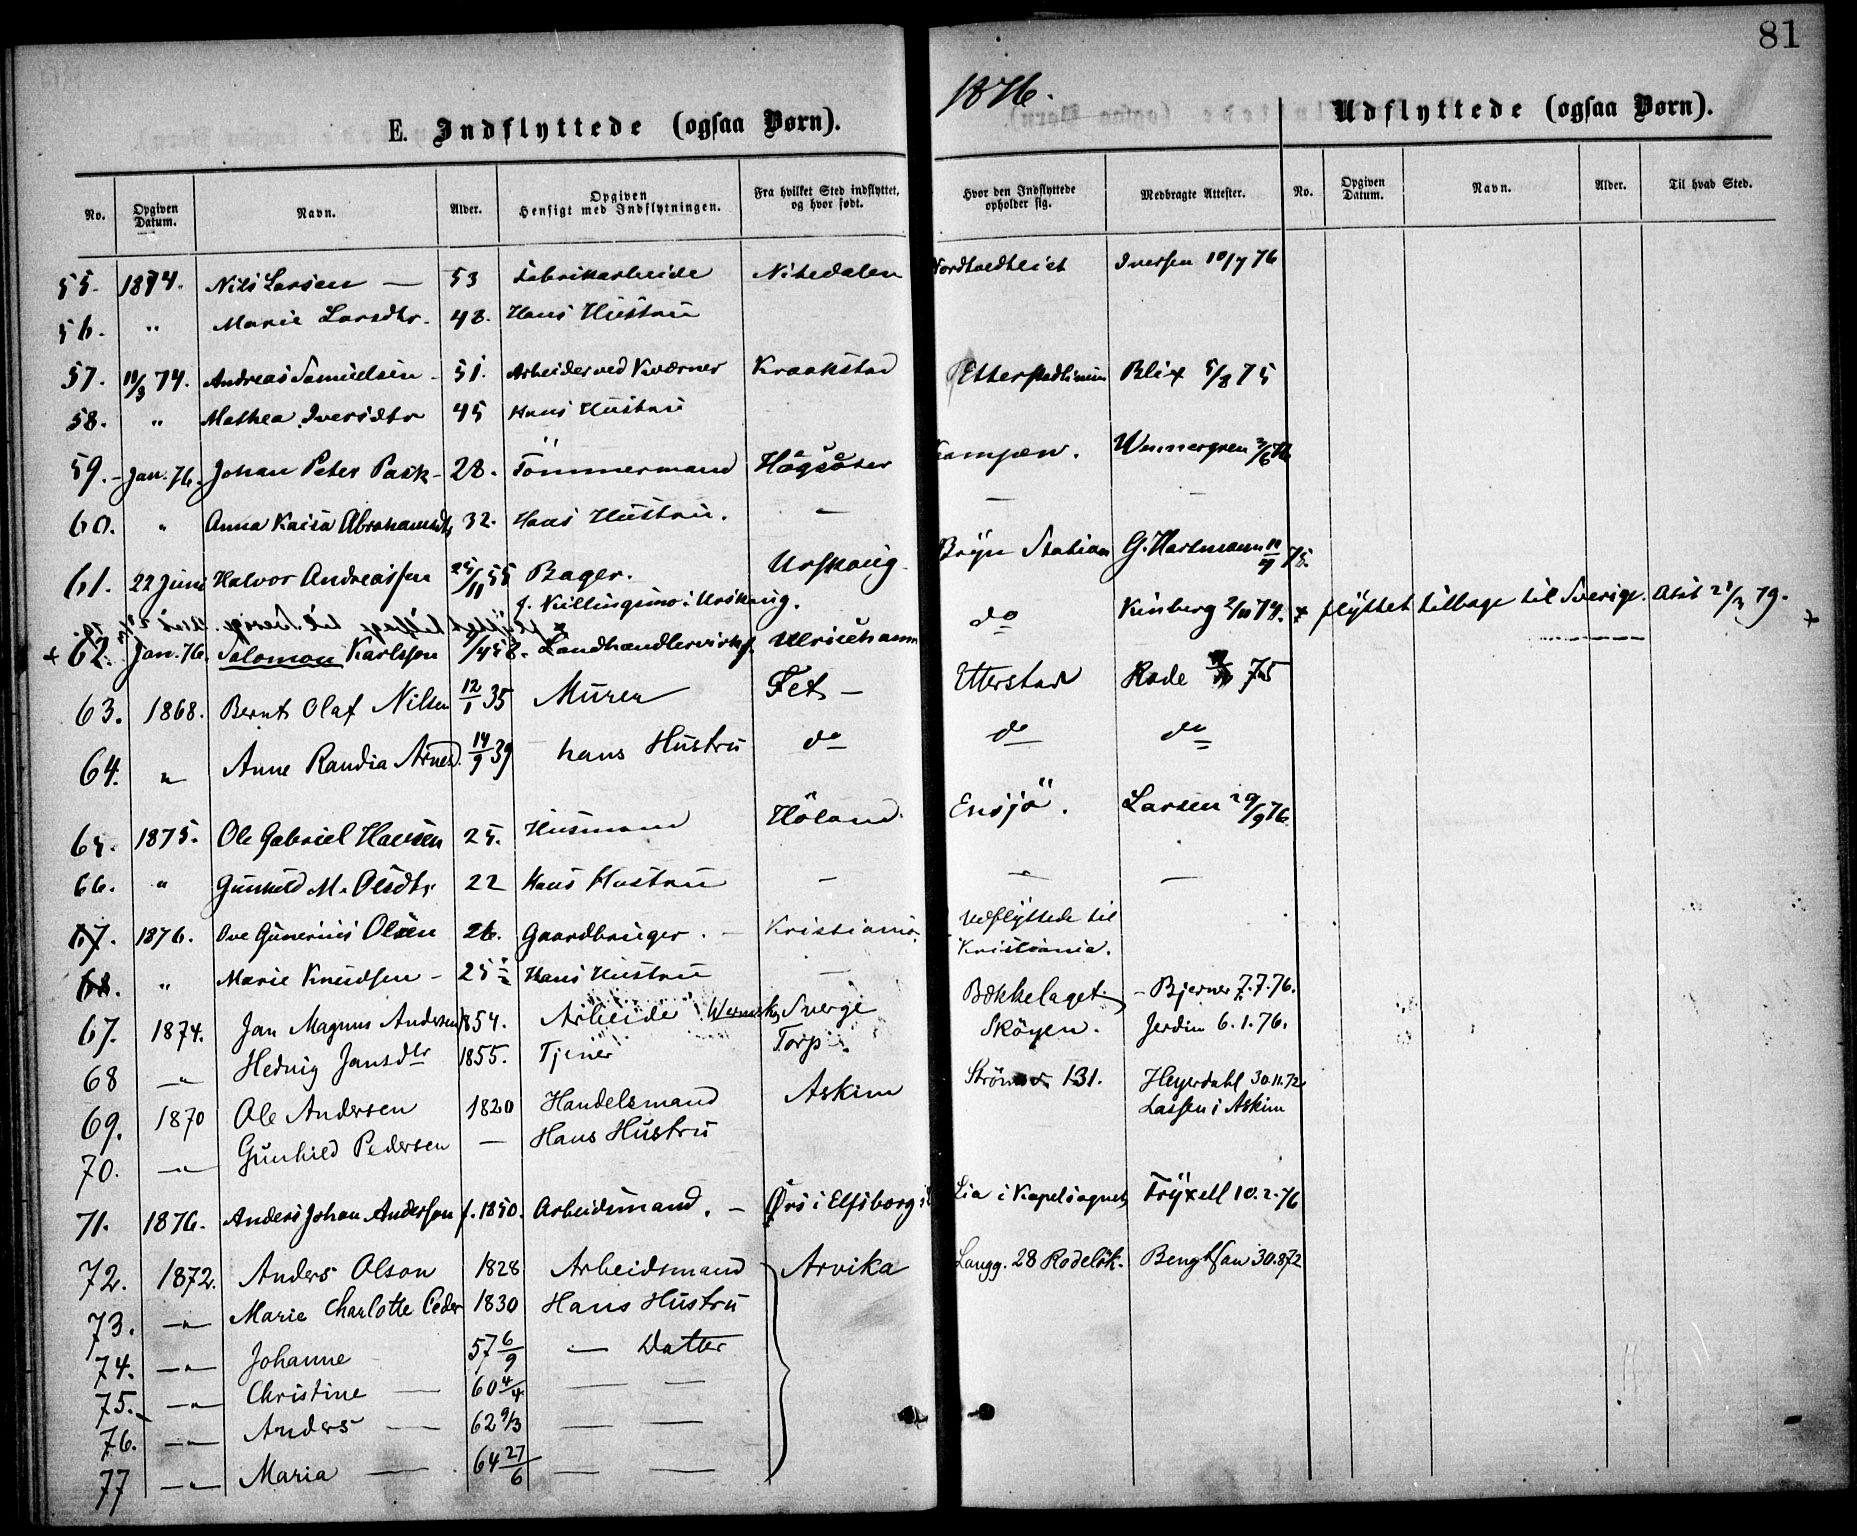 81
1876.
E. Indflyttede (ogsaa Børn).
Udflyttede (ogsaa Børn).
No. Opgiven Datum. Navn. Alder. Opgiven Hensigt med Indflytningen. Fra hvilket Sted indflyttet, og hvor født. Hvor den Indflyttede opholder sig. Medbragte Attester. No. Opgiven Datum. Navn. Alder. Til hvad Sted.
55. 1874. Nils Larsen — 53 Fabrikarbeide Nitedalen Iversen 10/7 76
56. " Marie Larsdtr. 48. Hans Hustru
57. 11/3 74. Andreas Samuelsen - 51. Arbeider ved Kværner Kraakstad Blix 5/8 75
58. " Mathea Iversdtr 45 Hans Hustru
59. - Jan. 76. Johan Peter Pask - 28. Tömmermand Högsäter Kampen. Wennergren
60. " Anna Kaisa Abrahamsdtr 32. Hans Hustru. — — —
61. 22 Juni Halvor Andreassen 25/11 55 Bager. Urskoug Bryn Station G. Hartmann 11/9 75.
f. Killingmo i Urskoug.
+ 62. Jan. 76. Salomon Karlsson Landhandlervirks. Ulricehamn do Kinberg 2/11 74. + flyttet tilbage til Sverige. Atst 21/3 79. +
63. 1868. Bernt Olaf Nilsen 12/1 35 Murer Fet — Etterstad Rode 75
64. " Anne Randia Arnesd. 14/9 39 hans Hustru do do do
65. 1875. Ole Gabriel Hansen 25. Husmand Höland. Ensjö. Larsen 29/9 76.
66. " Gunhild M. Olsdtr 22 Hans Hustru — — —
67. 1876. Ove Gunerius Olsen 26. Gaardbruger. — Kristiania Udflyttede til
Kristiania.
68. " Marie Knudsen - 25 Hans Hustru —
67. 1874. Jan Magnus Andersen 1854. Arbeide Sverge Bækkelaget. - Bjerner 7.7.76.
68 —"— Hedvig Jansdtr 1855. Tjener Torp. Sköyen. Jerdin 6.1.76.
69. 1870 Ole Andersen 1820 Handelsmand Askim 131. Heyerdahl 30.11.72.
Lassen i Askim
70. —"— Gunhild Pedersen — Hans Hustru
71. 1876. Anders Johan Anderson f. 1850. Arbeidsmand. — Örs i Elfsborgs Lia i Kapelsognet, Fryxell 10.2.76
72. 1872. Anders Olson 1828 Arbeidsmand Arvika Langg. 28 Rodelök. Bengtson 30.8 72
73. —"— Marie Charlotte Peder 1830 Hans Hustru
74. —"— Johanne 57 6/9 — Datter
75. —"— Christine — 60 4/4 — —
76. —"— Anders — 62 9/3 — —
77 —"— Maria — 64 27/6 — —